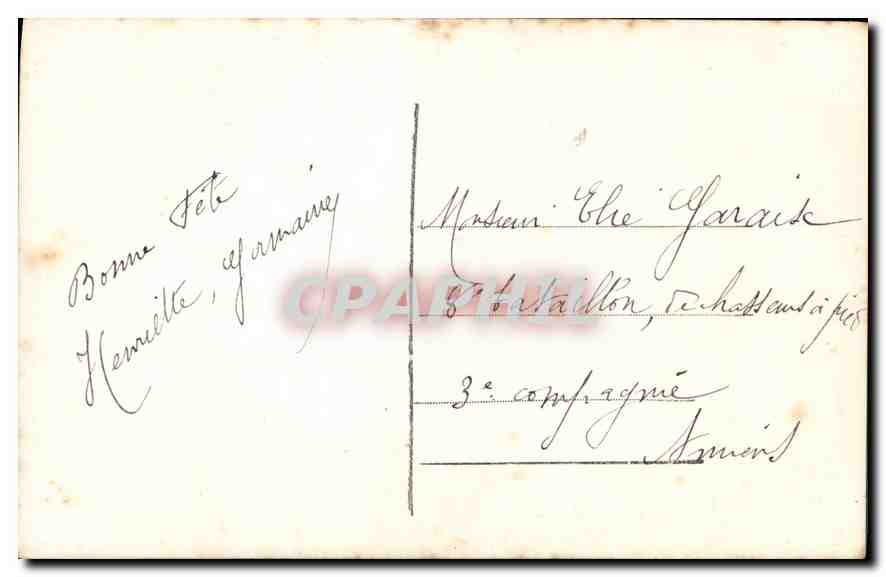 Bonne Fête
Henriette, Germaine
Monsieur Elie Garaise
8e bataillon, de chasseurs à pied
3e compagnie
Amiens
CPAPHIL